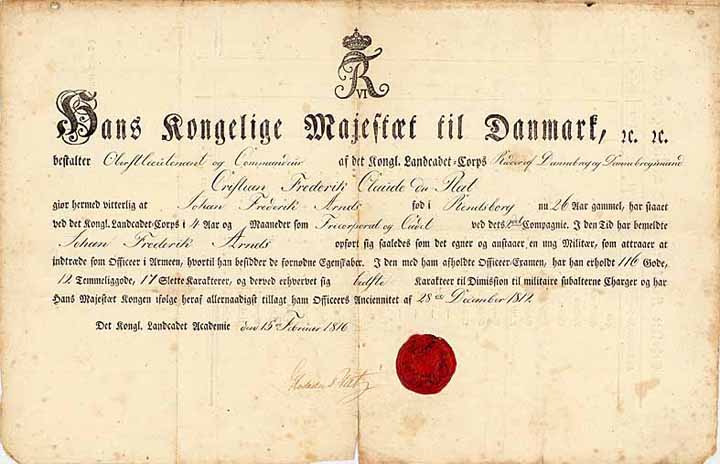 FR VI
Hans Kongelige Majestæt til Danmark, ꝛc. ꝛc.
bestalter Oberstlieutenant og Commandeur af det Kongl. Landcadet-Corps Ridder af Dannebrog og Dannebrogsmand
Cristian Frederik Claude du Plat
giør hermed vitterlig at Johan Frederik Arnds fød i Rendsborg nu 26 Aar gammel, har staaet
ved det Kongl. Landcadet-Corps i 4 Aar og Maaneder som Frecorporal og Cadet ved dets Compagnie. I den Tid har bemeldte
Johan Frederik Arnds opført sig saaledes som det egner og anstaaer en ung Militær, som attraaer at
indtræde som Officer i Armeen, hvortil han besidder de fornødne Egenskaber. I den med ham afholdte Officer-Examen, har han erholdt 116 Gode,
12 Temmeliggode, 17 Slette Karakterer, og derved erhvervet sig bedste Karakteer til Dimission til militaire subalterne Charger og har
Hans Majestæt Kongen ifølge heraf allernaadigst tillagt ham Officers Anciennitet af 28 December 1812
Det Kongl. Landcadet Academie den 15 Februar 1816